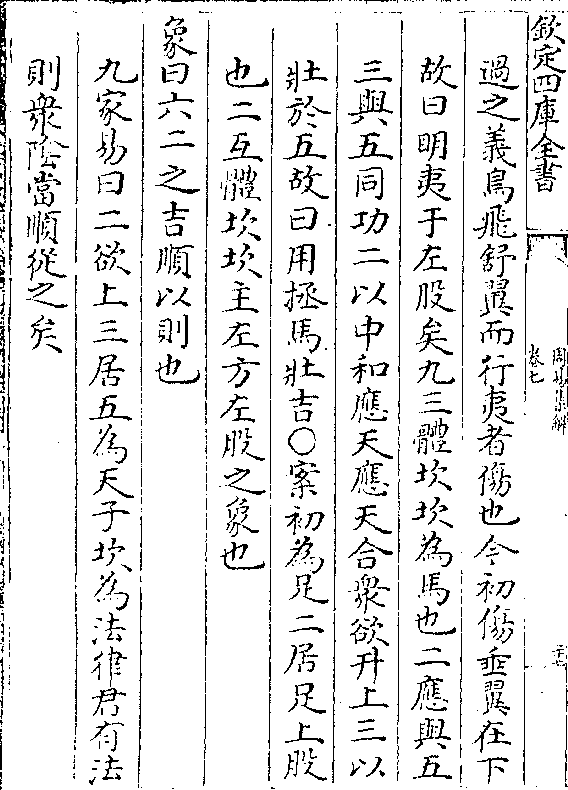 欽定四庫全書
周易集解
卷七
過之義鳥飛舒翼而行夷者傷也今初傷垂翼在下
故曰明夷于左股矣九三體坎坎為馬也二應與五
三與五同功二以中和應天應天合衆欲升上三以
壯於五故曰用拯馬壯吉○案初為足二居足上股
也二互體坎坎主左方左股之象也
象曰六二之吉順以則也
九家易曰二欲上三居五為天子坎為法律君有法
則衆陰當順從之矣